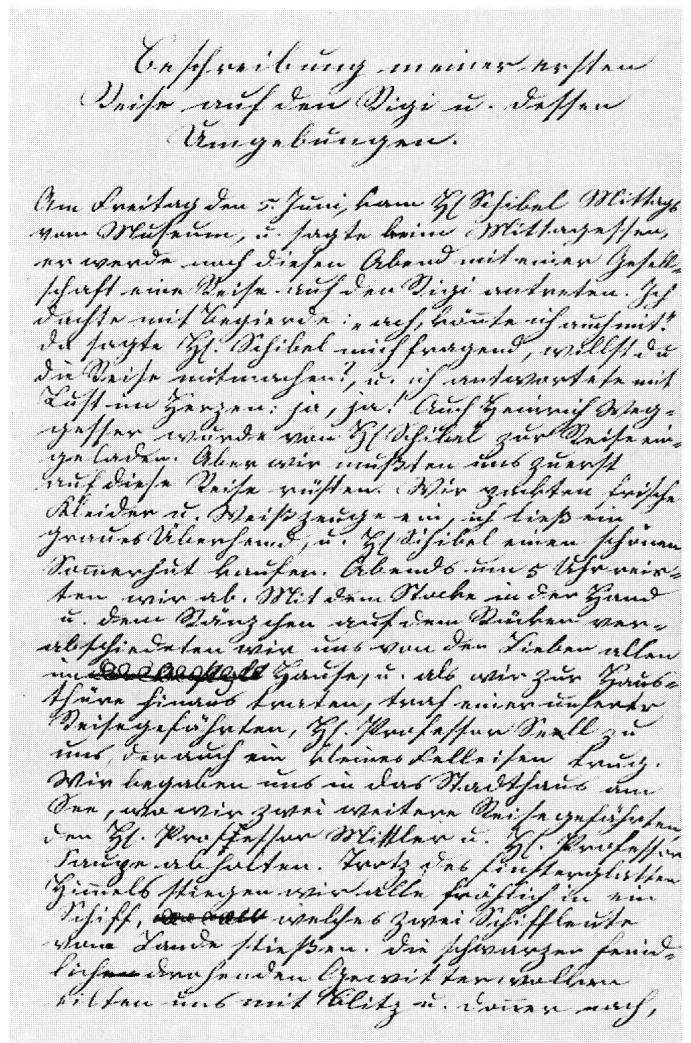 Beschreibung meiner ersten
Reise auf den Rigi u. dessen
Umgebungen.
Am Freitag den 5. Juni, kam H. Schibel Mittags
vom Museum, u. sagte beim Mittagessen,
er werde noch diesen Abend mit einer Gesell-
schaft eine Reise auf den Rigi antreten. Ich
dachte mit Begierde: „ach, könnte ich auch mit!"
da sagte H. Schibel mich fragend, willst du
die Reise mitmachen?, u. ich antwortete mit
Lust im Herzen: ja, ja! Auch Heinrich Weg-
gesser wurde von H. Schibel zur Reise ein-
geladen. Aber wir mußten uns zuerst
auf diese Reise rüsten. Wir packten frische
Kleider u. Weißzeuge ein, ich ließ ein
graues Überhemd, u. H. Schibel einen schönen
Sommerhut kaufen. Abends um 5 Uhr reis-
ten wir ab. Mit dem Stocke in der Hand
u. dem Ränzchen auf dem Rücken ver-
abschiedeten wir uns von den Lieben allen
im Hause, u. als wir zur Haus-
thüre hinaus traten, traf einer unserer
Reisegefährten, H. Professor Snell zu
uns, der auch ein kleines Felleisen trug.
Wir begaben uns in das Stadthaus am
See, wo wir zwei weitere Reisegefährten
den H. Professor Mittler u. H. Professor
abholten. Trotz des
Himmels stiegen wir alle fröhlich in ein
Schiff, welches zwei Schiffleute
vom Lande stießen. die schwarzen feind-
lich drohenden Gewitterwolken
eilten uns mit Blitz u. Donner nach,